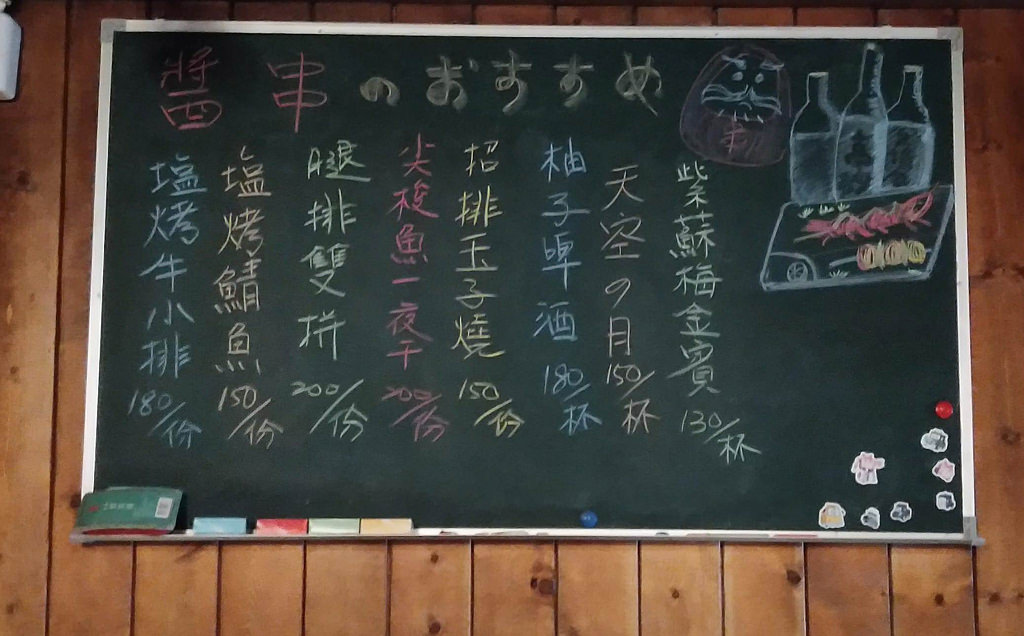 醬串のおすすめ
塩烤牛小排 180/份
塩烤鯖魚 150/份
腿排雙拼 200/份
尖梭魚一夜干 200/份
招排玉子燒 150/份
柚子啤酒 180/杯
天空の月 150/杯
紫蘇梅金賓 130/杯
串